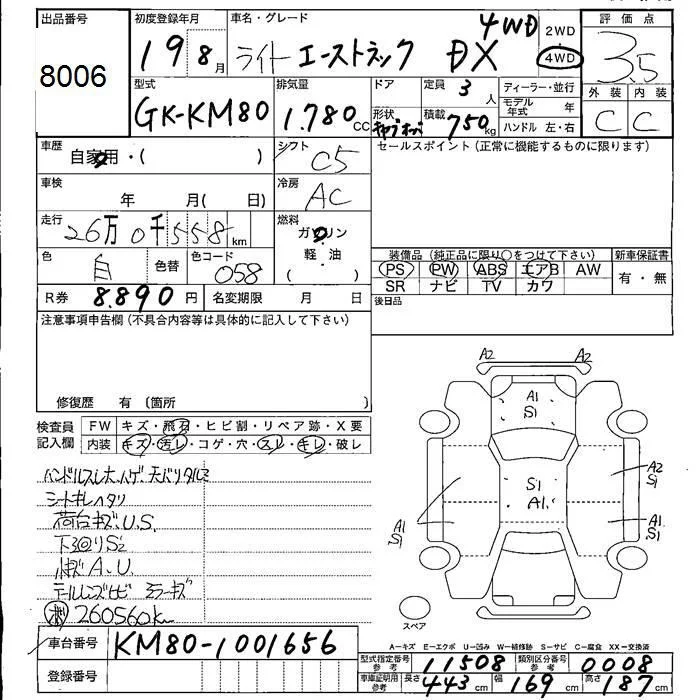 出品番号 初度登録年月 車名・グレード 評価点
8006 19 8月 ライトエーストラック DX 4WD 2WD 4WD 3.5
型式 排気量 ドア 定員 3人 ディーラー・並行 外装 内装
GK-KM80 1.780cc 形状 積載 750kg モデル年式 年 C C
ハンドル 左・右
車歴 自家用・( ) シフト C5 セールスポイント(正常に機能するものに限ります)
車検 年 月( 日) 冷房 AC
走行 26万0千558km 燃料 ガソリン
色 白 色替 色コード 058 軽油 ( )
装備品(純正品に限り○をつけて下さい) 新車保証書
PS PW ABS エアB AW 有・無
SR ナビ TV カワ
R券 8.890円 名変期限 月 日 後日品
注意事項申告欄(不具合内容等は具体的に記入して下さい)
修復歴 有 (箇所 )
検査員 FW キズ・飛石・ヒビ割・リペア跡・X要
記入欄 内装 キズ・汚レ・コゲ・穴・スレ・キレ・破レ
ハンドルスレ大ハゲ、天バリタルミ
シートキレヘタリ
荷台キズU.S
下回りS2
A.U
テールレンズヒビ ミラーキズ
260560km
A2 A2
A1
S1
S1
A1
A2
S1
A1
S1
A1
S1
スペア
A−キズ E−エクボ U−凹み W−補修跡 S−サビ C−腐食 XX−交換済
車台番号 KM80-1001656
型式指定番号 参考 11508 類別区分番号 参考 0008
登録番号 車庫証明用 参考 長さ 443cm 幅 169cm 高さ 187cm